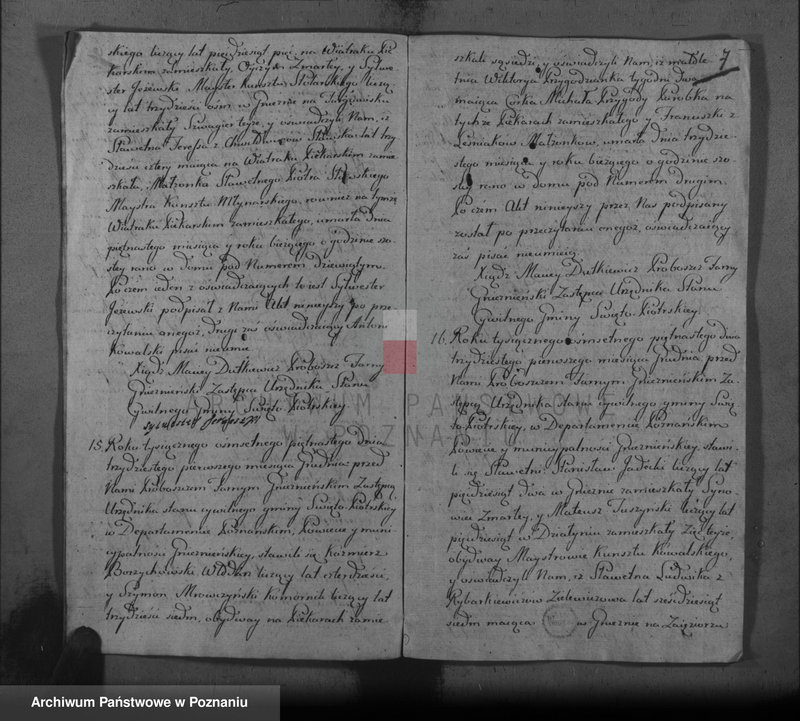 skiego liczący lat pięćdziesiąt pięć, na Wiatraku Pie
karskim zamieszkały, Oyczym Zmarłey, y Sylwe
ster Jezewski Mayster Kunsztu Stolarskiego liczą
cy lat trzydzieści ośm w Gnieznie na
zamieszkały Szwagier teyze, y oswiadczyli Nam, iz
Sławetna Teressa z Stawska lat trzy
dzieści cztery maiąca na Wiatraku Piekarskim zamie
szkała, Małzonka Sławetnego Piotra Stawskiego
Maystra Kunsztu Młynarskiego, rownież na tymze
Wiatraku Piekarskim zamieszkałego, umarła dnia
piętnastego miesiąca y roku bieżącego o godzinie szo
stey rano w domu pod Numerem dziewiątym.
Po czem ieden z oswiadczaiących to iest Sylwester
Jezewski podpisał z Nami Akt ninieyszy po prze
czytaniu onegoz, drugi zas oswiadczaiący Antoni
Kowalski pisać nieumie
Xiądz Maciey Dutkiewicz Proboszcz Farny
Gnieznieński Zastępca Urzędnika Stanu
Cywilnego Gminy Swięto Piotrskiey
Sylwester Jezewski
15. Roku tysiącznego ośmsetnego piętnastego dnia
trzydziestego pierwszego miesiąca Grudnia przed
Nami Proboszczem Farnym Gnieznieńskim Zastępcą
Urzędnika stanu cywilnego gminy Swięto Piotrskiey
w Departamencie Poznańskim, Powiecie y muni
cypalnosci Gnieznieńskiey, stawili się Kazmierz
Borzychowski, liczący lat czterdzieści,
y Szymon Mrowczyński komornik liczący lat
trzydzieści siedm, obydway na Piekarach zamie
7
szkali sąsiedzi y oswiadczyli Nam, iz małole
tnia Wiktorya Przygodzianka tygodni dwa
maiąca Corka Michała Przygody Parobka na
tychze Piekarach zamieszkałego y Franciszki z
Lesniakow Małzonkow, umarła dnia trzydzie
stego miesiąca y roku bieżącego o godzinie szo
stey rano w domu pod Numerem drugim.
Po czem Akt ninieyszy przez Nas podpisany
został po przeczytaniu onegoz, oswiadczaiący
zas pisać nieumieią
Xiądz Maciey Dutkiewicz Proboszcz Farny
Gnieznieński Zastępca Urzędnika Stanu
Cywilnego Gminy Swięto Piotrskiey
16. Roku tysiącznego ośmsetnego piętnastego dnia
trzydziestego pierwszego miesiąca Grudnia przed
Nami Proboszczem Farnym Gnieznieńskim Za
stępcą Urzędnika stanu cywilnego gminy Swię
to Piotrskiey, w Departamencie Poznańskim
Powiecie y municypalnosci Gnieznieńskiey, stawi
li się Sławetni Stanisław Jadecki liczący lat
pięćdziesiąt dwa w Gnieznie zamieszkały Syno
wiec Zmarłey, y Mateusz Tuszynski liczący lat
pięćdziesiąt w Działyniu zamieszkały Zięć teyze,
obydway Maystrowie Kunsztu Kowalskiego,
y oswiadczyli Nam, iz Sławetna Ludwika z
Rybarkiewiczow Zielewiczowa lat sześćdziesiąt
siedm maiąca w Gnieznie na Zaiezierzu
ARCHIWUM PAŃSTWOWE
W POZNANIU
Archiwum Państwowe w Poznaniu